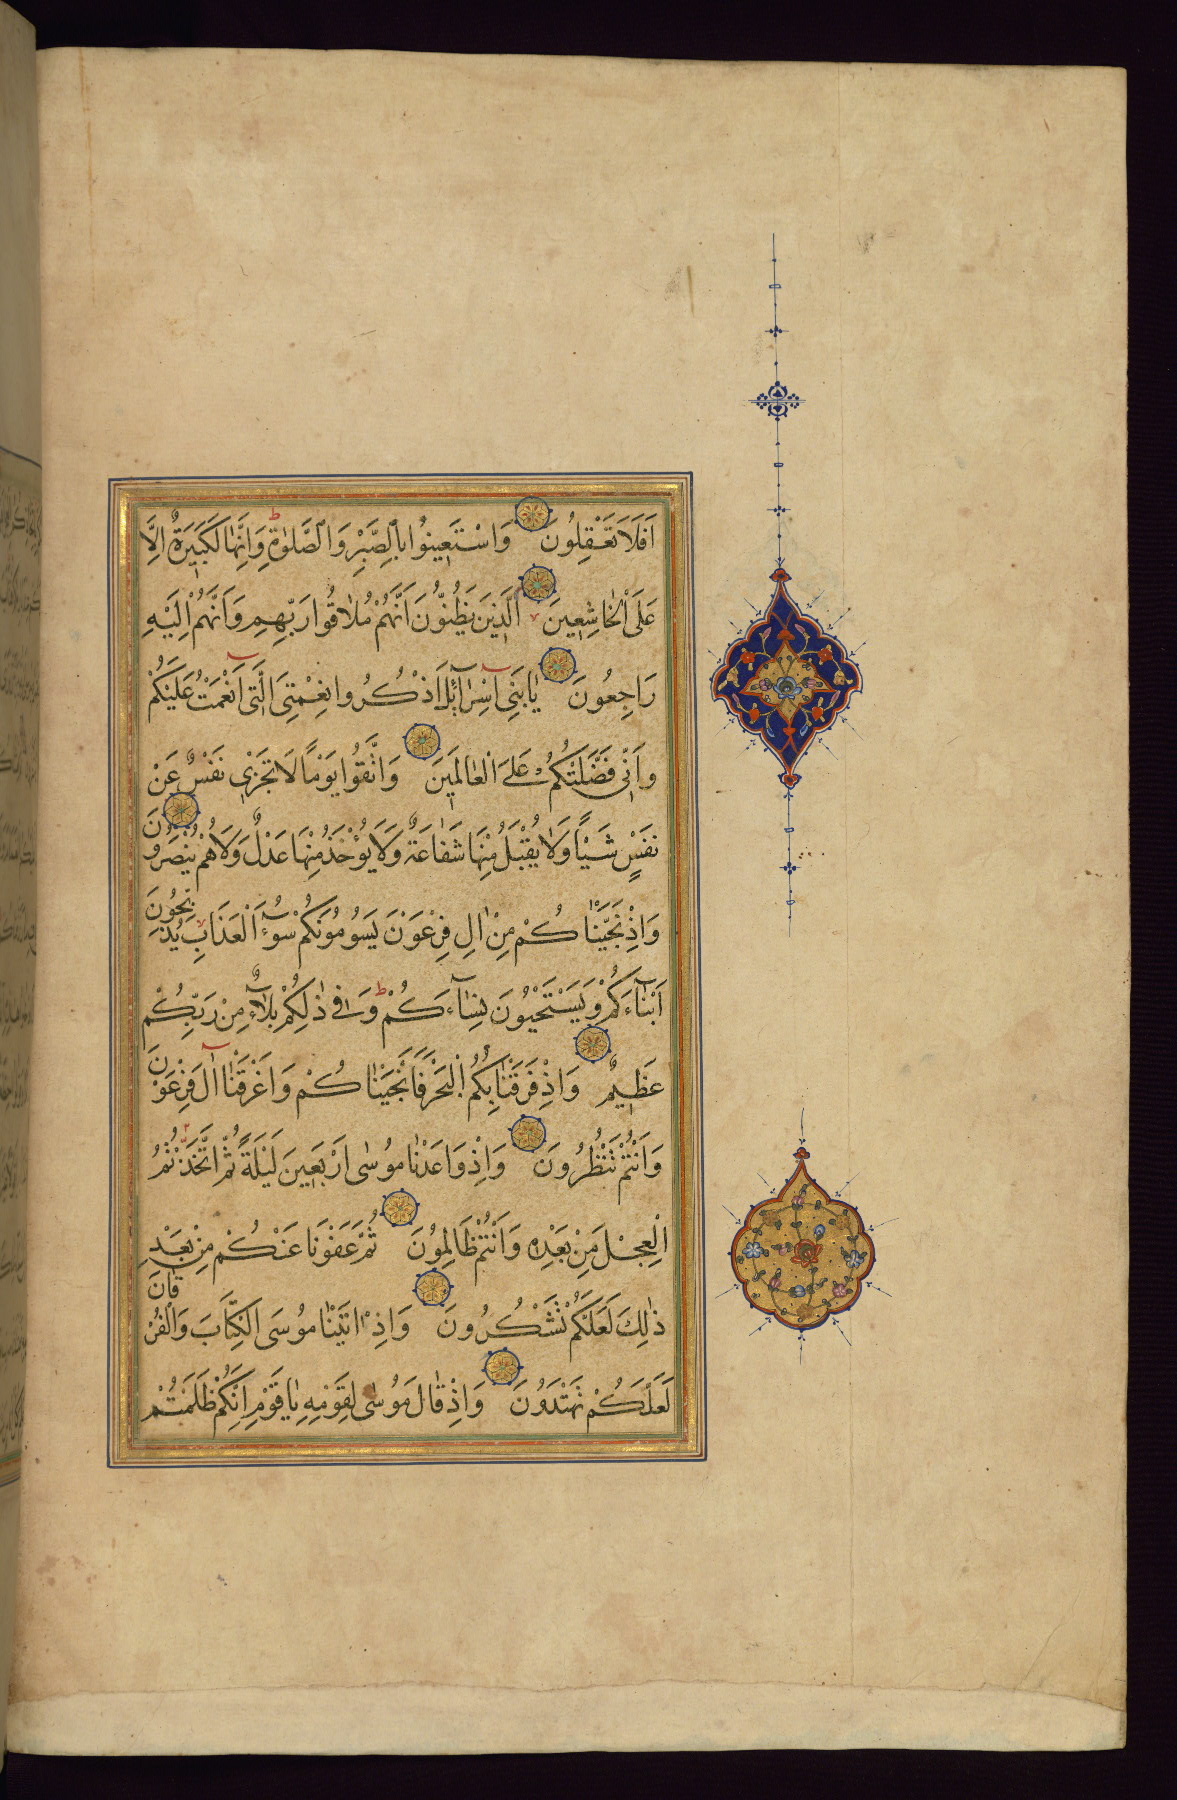 اَفَلَا تَعْقِلُونَ وَاسْتَعِينُوا بِالصَّبْرِ وَالصَّلٰوةِ وَاِنَّهَا لَكَبِيرَةٌ اِلَّا
عَلَى الْخَاشِعِينَ الَّذِينَ يَظُنُّونَ اَنَّهُمْ مُلَاقُوا رَبِّهِمْ وَاَنَّهُمْ اِلَيْهِ
رَاجِعُونَ يَا بَنِي اِسْرَآئِلَ اذْكُرُوا نِعْمَتِيَ الَّتِي اَنْعَمْتُ عَلَيْكُمْ
وَاَنِّي فَضَّلْتُكُمْ عَلَى الْعَالَمِينَ وَاتَّقُوا يَوْمًا لَا تَجْزِي نَفْسٌ عَنْ
نَفْسٍ شَيْئًا وَلَا يُقْبَلُ مِنْهَا شَفَاعَةٌ وَلَا يُؤْخَذُ مِنْهَا عَدْلٌ وَلَا هُمْ يُنْصَرُونَ
وَاِذْ نَجَّيْنَاكُمْ مِنْ اٰلِ فِرْعَوْنَ يَسُومُونَكُمْ سُوٓءَ الْعَذَابِ يُذَبِّحُونَ
اَبْنَآءَكُمْ وَيَسْتَحْيُونَ نِسَآءَكُمْ وَفِي ذٰلِكُمْ بَلَآءٌ مِنْ رَبِّكُمْ
عَظِيمٌ وَاِذْ فَرَقْنَا بِكُمُ الْبَحْرَ فَاَنْجَيْنَاكُمْ وَاَغْرَقْنَا اٰلَ فِرْعَوْنَ
وَاَنْتُمْ تَنْظُرُونَ وَاِذْ وَاعَدْنَا مُوسٰى اَرْبَعِينَ لَيْلَةً ثُمَّ اتَّخَذْتُمُ
الْعِجْلَ مِنْ بَعْدِهِ وَاَنْتُمْ ظَالِمُونَ ثُمَّ عَفَوْنَا عَنْكُمْ مِنْ بَعْدِ
ذٰلِكَ لَعَلَّكُمْ تَشْكُرُونَ وَاِذْ اٰتَيْنَا مُوسَى الْكِتَابَ وَالْفُرْقَانَ
لَعَلَّكُمْ تَهْتَدُونَ وَاِذْ قَالَ مُوسٰى لِقَوْمِهِ يَا قَوْمِ اِنَّكُمْ ظَلَمْتُمْ